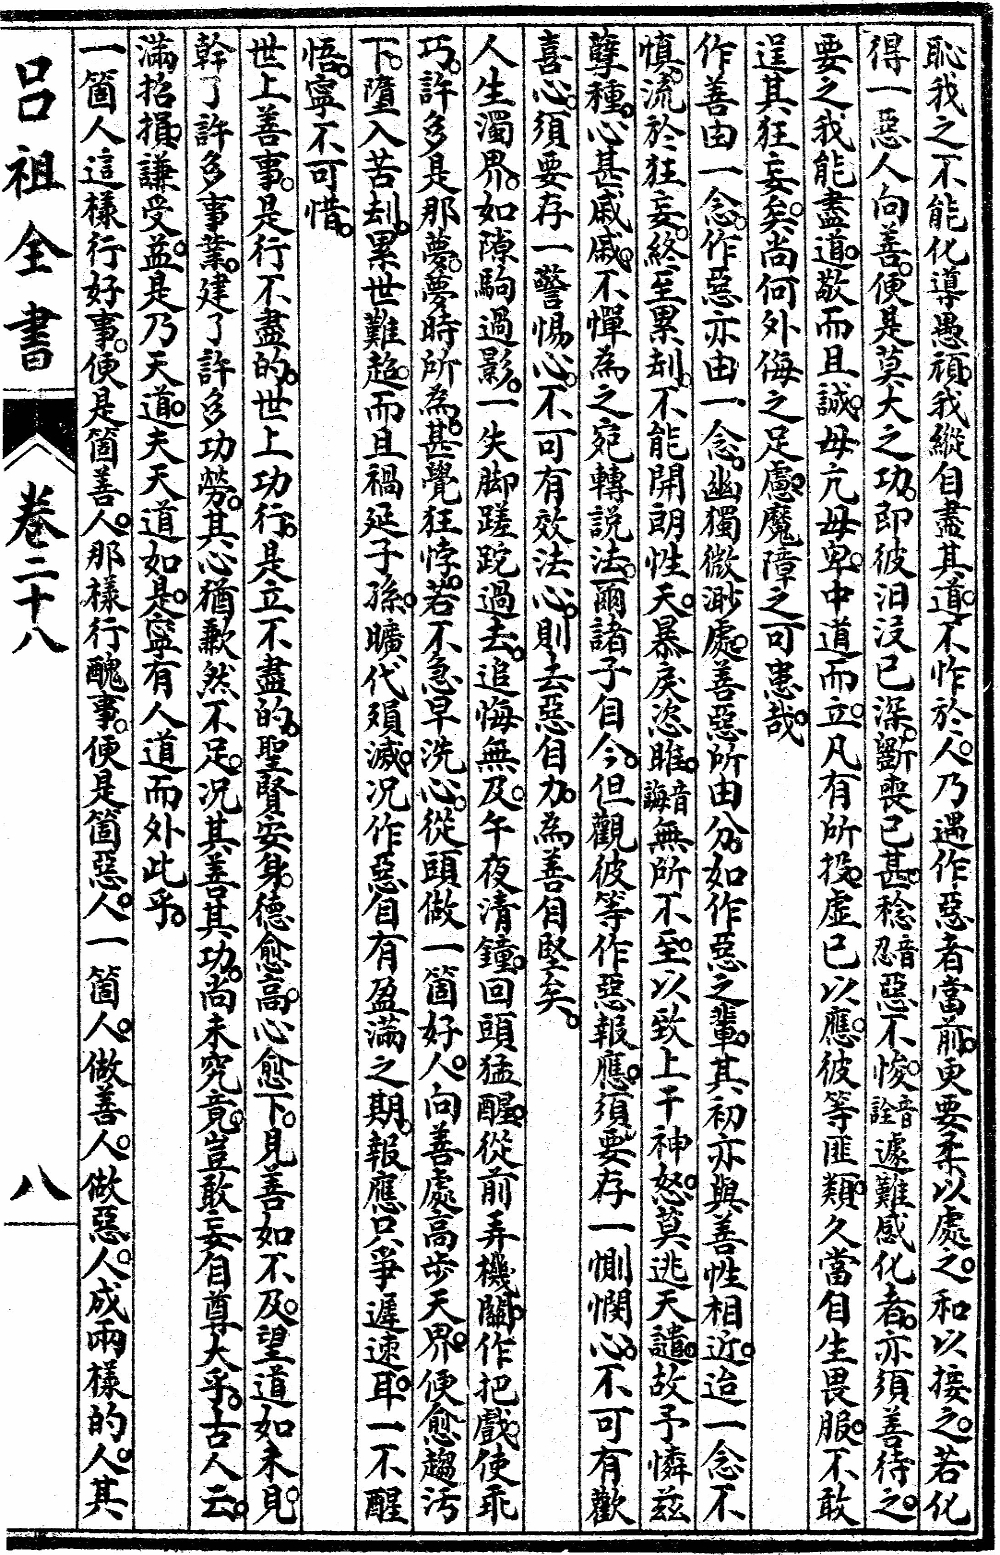 恥我之不能化導愚頑我縱自盡其道不怍於人乃遇作惡者當前更要柔以處之和以接之若化
得一惡人向善便是莫大之功即彼汩沒已深斲喪已甚稔音忍惡不悛音詮遽難感化者亦須善待之
要之我能盡道敬而且誠毋亢毋卑中道而立凡有所投虛已以應彼等匪類久當自生畏服不敢
逞其狂妄矣尚何外侮之足慮魔障之可患哉
作善由一念作惡亦由一念幽獨微渺處善惡所由分如作惡之輩其初亦與善性相近迨一念不
慎流於狂妄終至累刦不能開朗性天暴戾恣睢音誨無所不至以致上干神怒莫逃天譴故予憐茲
孽種心甚戚戚不憚為之宛轉說法爾諸子自今但觀彼等作惡報應須要存一惻憫心不可有歡
喜心須要存一警惕心不可有效法心則去惡自力為善自堅矣
人生濁界如隙駒過影一失脚蹉跎過去追悔無及午夜清鐘回頭猛醒從前弄機關作把戲使乖
巧許多是那夢夢時所為甚覺狂悖若不急早洗心從頭做一箇好人向善處高步天界便愈趨污
下墮入苦刦累世難超而且禍延子孫曠代殞滅况作惡自有盈滿之期報應只爭遲速耳一不醒
悟寧不可惜
世上善事是行不盡的世上功行是立不盡的聖賢安身德愈高心愈下見善如不及望道如未見
幹了許多事業建了許多功勞其心猶歉然不足况其善其功尚未究竟豈敢妄自尊大乎古人云
滿招損謙受益是乃天道夫天道如是寧有人道而外此乎
一箇人這樣行好事便是箇善人那樣行醜事便是箇惡人一箇人做善人做惡人成兩樣的人其
呂祖全書
卷二十八
八